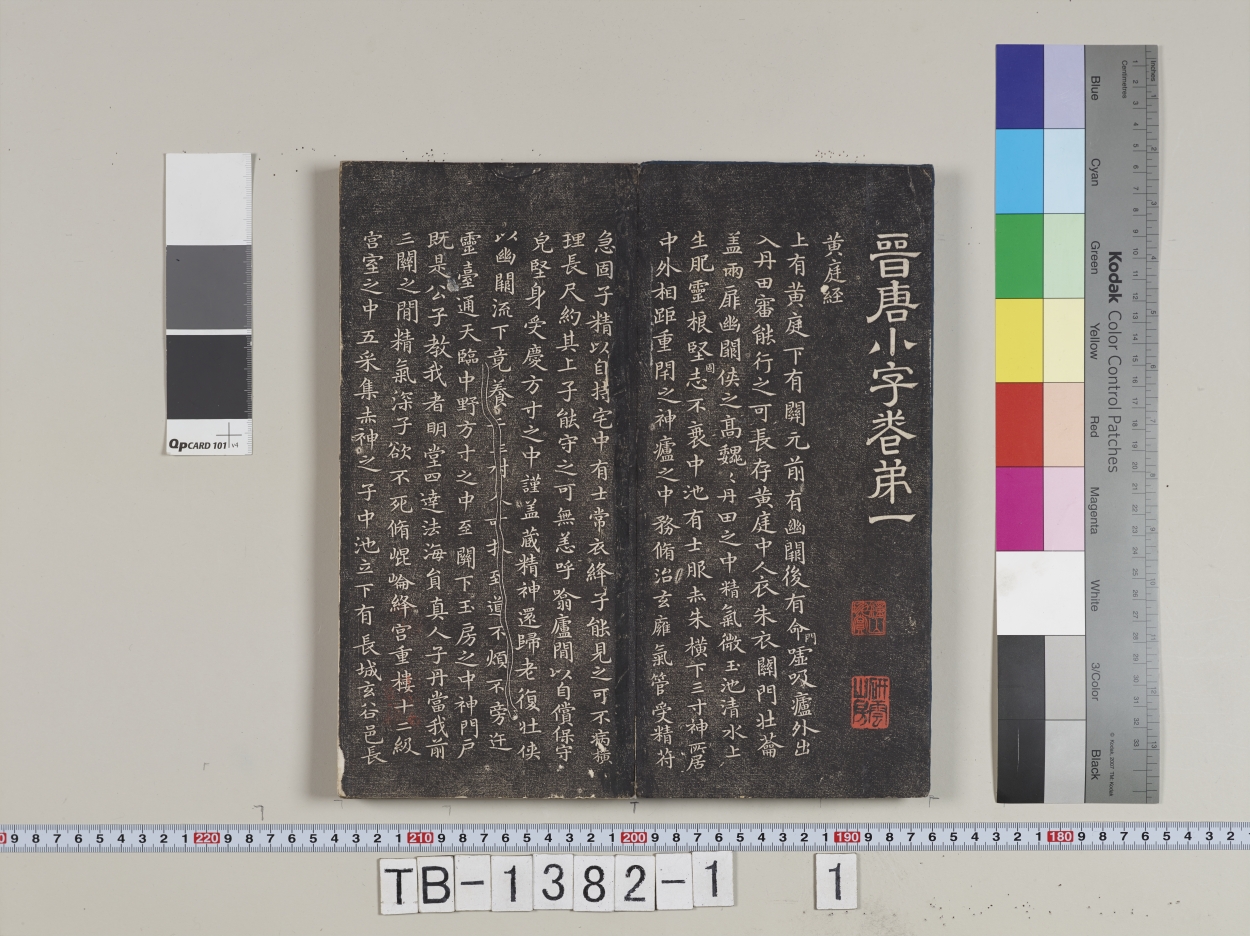 晉唐小字卷弟一
黃庭經
上有黃庭下有關元前有幽闕後有命門噓吸廬外出
入丹田審能行之可長存黃庭中人衣朱衣關門壯籥
蓋兩扉幽闕俠之高魏〻丹田之中精氣微玉池清水上
生肥靈根堅固志不衰中池有士服赤朱橫下三寸神所居
中外相距重閇之神廬之中務脩治玄廱氣管受精符
急固子精以自持宅中有士常衣絳子能見之可不病橫
理長尺約其上子能守之可無恙呼翕廬間以自償保守
皃堅身受慶方寸之中謹蓋藏精神還歸老復壯俠
以幽闕流下竟養至道不煩不旁迕
靈臺通天臨中野方寸之中至關下玉房之中神門戶
既是公子教我者明堂四達法海負真人子丹當我前
三關之間精氣深子欲不死脩崐崙絳宮重樓十二級
宮室之中五采集赤神之子中池立下有長城玄谷邑長
硏雲山房
QPCARD 101 v4
Kodak Color Control Patches
Inches
Centimetres
Blue
Cyan
Green
Yellow
Red
Magenta
White
3/Color
Black
TB-1382-1 1
220
210
200
190
180